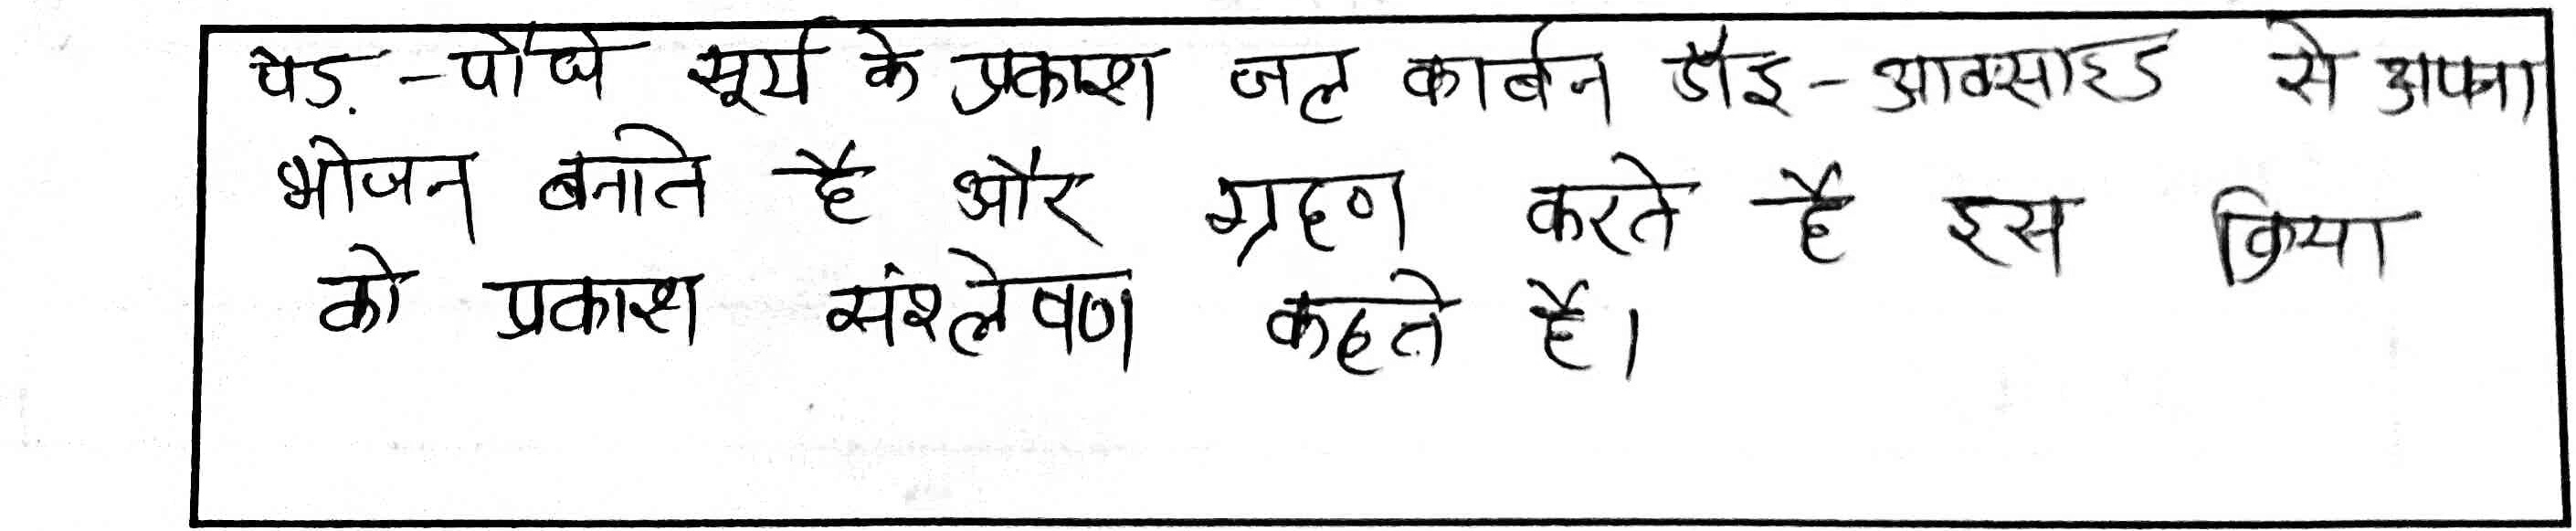 पेड़-पौधे सूर्य के प्रकाश जल कार्बन डौइ-आक्साइड से अपना
भोजन बनाते है और ग्रहण करते है इस क्रिया
को प्रकाश संश्लेषण कहते है।